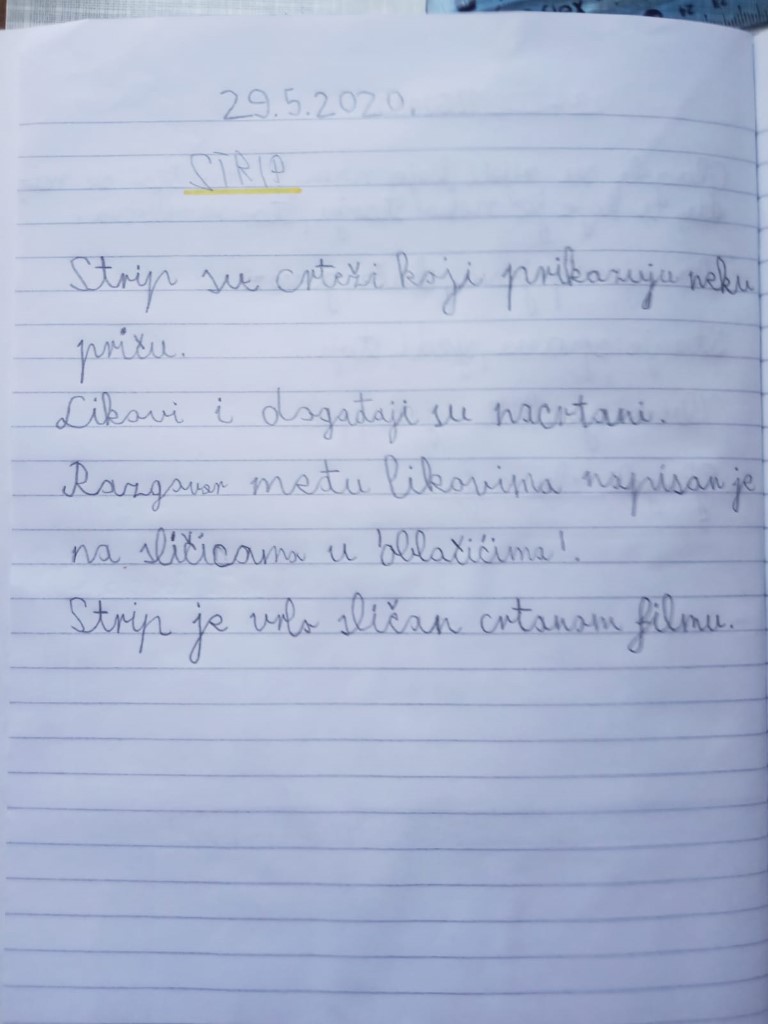 29.5.2020.
STRIP
Strip su crteži koji prikazuju neku
priču.
Likovi i događaji su nacrtani.
Razgovor među likovima napisan je
na sličicama u 'oblačićima'.
Strip je vrlo sličan crtanom filmu.